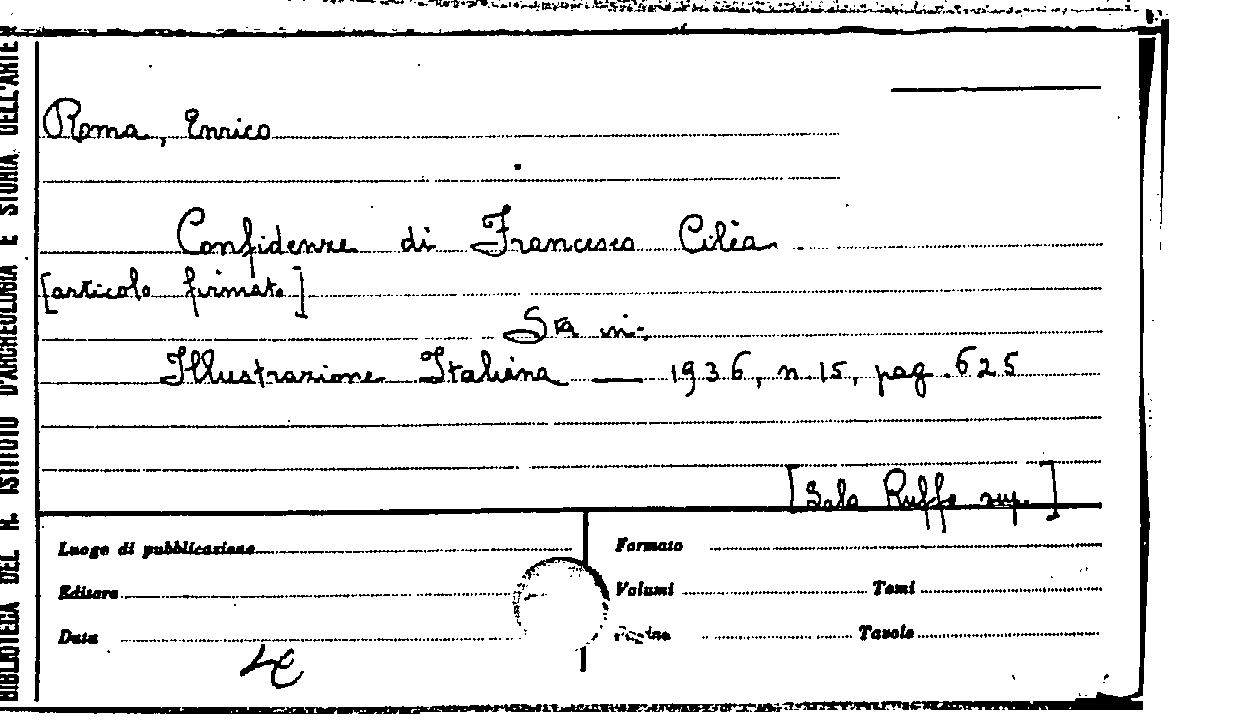 BIBLIOTECA DEL R. ISTITUTO D'ARCHEOLOGIA E STORIA DELL'ARTE
Roma, Enrico
Confidenze di Francesco Cilèa
[articolo firmato]
Sta in:
Illustrazione Italiana — 1936, n. 15, pag. 625
[Sala Ruffo sup.]
Luogo di pubblicazione Formato
Editore Volumi Tomi
Data Pagine Tavole